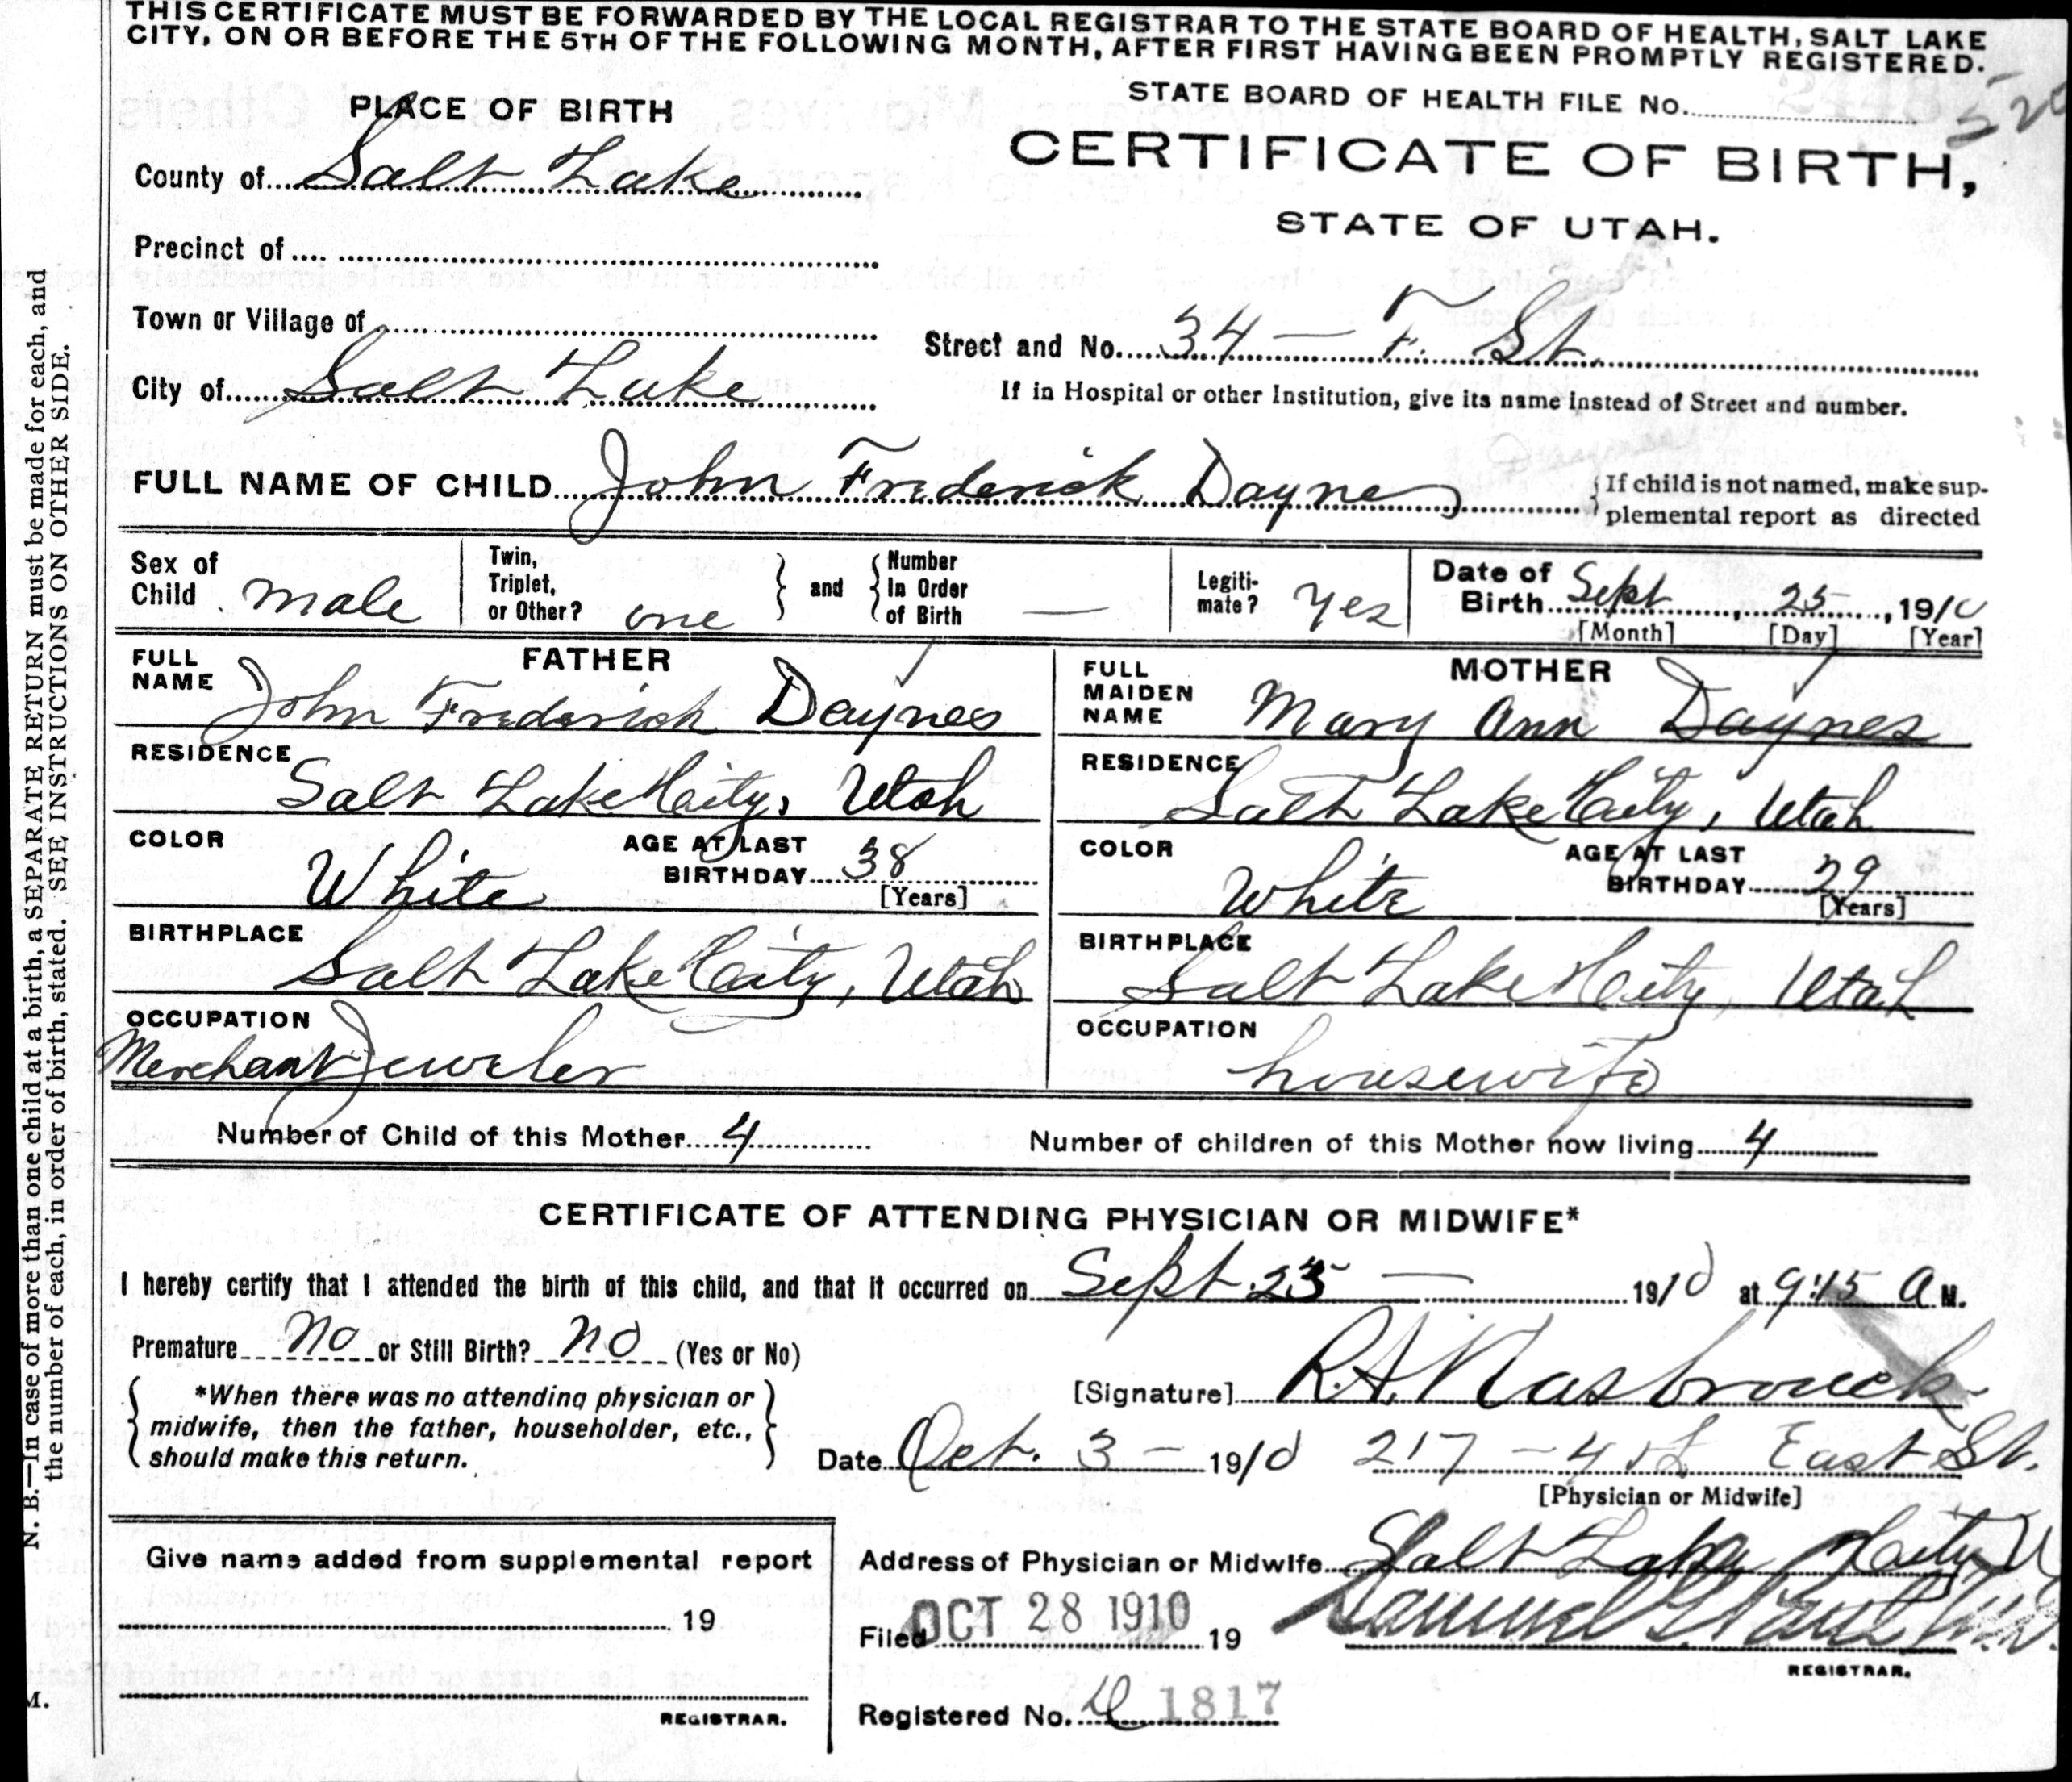 THIS CERTIFICATE MUST BE FORWARDED BY THE LOCAL REGISTRAR TO THE STATE BOARD OF HEALTH, SALT LAKE
CITY, ON OR BEFORE THE 5TH OF THE FOLLOWING MONTH, AFTER FIRST HAVING BEEN PROMPTLY REGISTERED.
STATE BOARD OF HEALTH FILE No.
PLACE OF BIRTH
CERTIFICATE OF BIRTH,
STATE OF UTAH.
County of Salt Lake
Precinct of
Town or Village of
Street and No. 34 — F. St.
City of Salt Lake
If in Hospital or other Institution, give its name instead of Street and number.
FULL NAME OF CHILD John Frederick Daynes
{If child is not named, make sup-
plemental report as directed
Sex of Child male
Twin, Triplet, or Other? one } and { Number In Order of Birth —
Legiti-mate? Yes
Date of Birth Sept 25, 1910
[Month] [Day] [Year]
FATHER
FULL NAME John Frederick Daynes
RESIDENCE Salt Lake City, Utah
COLOR White AGE AT LAST BIRTHDAY 38 [Years]
BIRTHPLACE Salt Lake City, Utah
OCCUPATION
Merchant Jeweler
MOTHER
FULL MAIDEN NAME Mary Ann Daynes
RESIDENCE Salt Lake City, Utah
COLOR White AGE AT LAST BIRTHDAY 29 [Years]
BIRTHPLACE Salt Lake City, Utah
OCCUPATION
housewife
Number of Child of this Mother 4 Number of children of this Mother now living 4
CERTIFICATE OF ATTENDING PHYSICIAN OR MIDWIFE*
I hereby certify that I attended the birth of this child, and that it occurred on Sept. 25 — 1910 at 9:15 A M.
Premature no or Still Birth? no (Yes or No)
{ *When there was no attending physician or
midwife, then the father, householder, etc.,
should make this return. }
[Signature] R.A. Hasbrouck
Date Oct. 3 — 1910 217 — 4th East St.
[Physician or Midwife]
Address of Physician or Midwife Salt Lake City U
Filed OCT 28 1910 19
Samuel G. Paul M.D.
REGISTRAR.
Registered No. 1817
Give name added from supplemental report
19
REGISTRAR.
N. B.—In case of more than one child at a birth, a SEPARATE RETURN must be made for each, and
the number of each, in order of birth, stated. SEE INSTRUCTIONS ON OTHER SIDE.
M.